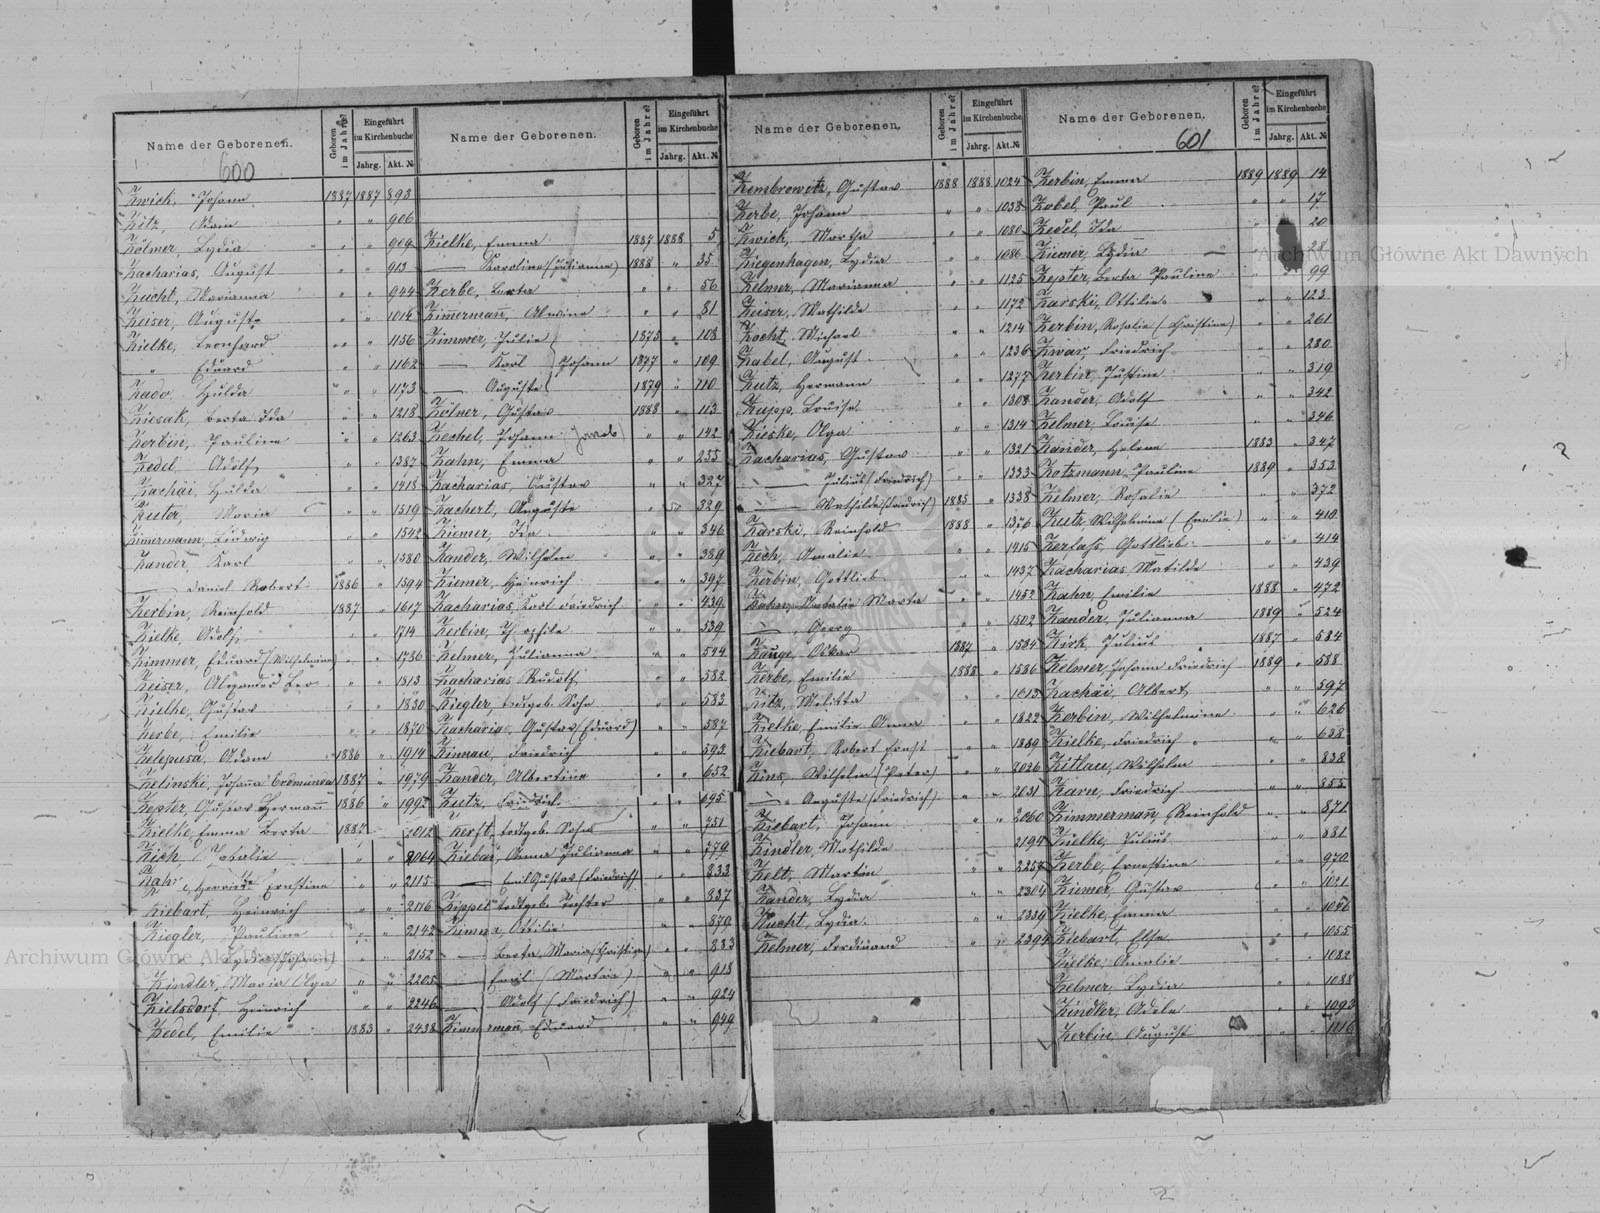 Name der Geborenen.
Geboren im Jahre?
Eingeführt im Kirchenbuche
Jahrg. Akt. №
600
Zwick, Johann 1887 1887 893
Zitz, Adam " " 906
Zölmer, Lydia " " 904
Zacharias, August " " 913
Zucht, Marianna " " 944
Zeiser, Auguste " " 1014
Zielke, Leonhard " " 1156
" Eduard " " 1162
Zado, Hulda " " 1173
Ziesak, Berta Ida " " 1218
Zerbin, Pauline " " 1263
Zedel, Adolf " " 1387
Zachäi, Hulda " " 1418
Zuter, Maria " " 1519
Zimmermann, Ludwig " " 1542
Zander, Karl " " 1580
— Daniel Robert 1886 " 1594
Zerbin, Reinhold 1887 " 1617
Zielke, Adolf " " 1714
Zimmer, Eduard (Wilhelmine) " " 1736
Zeiser, Alexander Leo " " 1813
Zielke, Gustav " " 1830
Zerbe, Emilie " " 1870
Zelepusa, Adam 1886 " 1914
Zelinski, Johann Erdmann 1887 " 1979
Zepter, Gustav Hermann 1886 " 199
Zielke, Emma Berta 1887 2012
Zich, Natalie " " 2064
Ernstine " " 2115
Ziebart, Heinrich " " 2116
Ziegler, Pauline " " 2142
— Lydia (Johann) " " 2152
Zindler, Maria Olga " " 2205
Zielsdorf, Heinrich " " 2246
Zedel, Emilie 1883 " 2438
Name der Geborenen.
Geboren im Jahre?
Eingeführt im Kirchenbuche
Jahrg. Akt. №
Zielke, Emma 1887 1888 5
— Karoline (Julianna) 1888 " 35
Zerbe, Berta " " 56
Zimermann, Alwine " " 81
Zimmer, Julie 1875 " 108
— Karl Johann 1877 " 109
— Auguste 1879 " 110
Zölner, Gustav 1888 " 113
Zechel, Johann Jacob " " 142
Zahn, Emma " " 255
Zacharias, Gustav " " 327
Zachert, Auguste " " 329
Ziemer, Ida " " 346
Zander, Wilhelm " " 389
Ziemer, Heinrich " " 397
Zacharias, Karl Friedrich " " 439
Zerbin, Theophile " " 539
Zelmer, Julianna " " 544
Zacharias Rudolf " " 582
Ziegler, todtgeb. Sohn " " 583
Zacharias, Gustav (Eduard) " " 587
Zinnau, Friedrich " " 592
Zander, Albertine " " 652
Zutz, Friedrich " " 695
Zerft, todtgeb. Sohn " " 751
Ziebar, Anna Julianna " " 779
— Emil Gustav (Friedrich) " " 832
Zippel todtgeb. Tochter " " 837
Zimma, Ottilie " " 870
— Berta, Maria (Christian) " " 883
— Emil (Martin) " " 918
— Adolf (Friedrich) " " 924
Zimmermann, Eduard " " 949
Name der Geborenen.
Geboren im Jahre?
Eingeführt im Kirchenbuche
Jahrg. Akt. №
Zembrowitz, Gustav 1888 1888 1024
Zerbe, Johann " " 1038
Zwick, Martha " " 1080
Ziegenhagen, Lydia " " 1086
Zelmer, Marianna " " 1125
Zeiser, Mathilde " " 1172
Zocht, Michael " " 1214
Zabel, August " " 1236
Zutz, Hermann " " 1277
Zupp, Louise " " 1308
Zieske, Olga " " 1314
Zacharias, Gustav " " 1321
— Julius (Friedrich) " " 1333
— Mathilde (Friedrich) 1885 " 1338
Zarski, Reinhold 1888 " 1376
Zech, Amalie " " 1415
Zerbin, Gottlieb " " 1437
Natalie Marta " " 1452
— , Georg " " 1502
Zauge, Oskar 1887 " 1534
Zerbe, Emilie 1888 " 1536
Zitz, Melitta " " 1613
Zielke, Emilie Anna " " 1822
Ziebart, Robert Ernst " " 1889
Zins, Wilhelm (Peter) " " 2026
— " Auguste (Friedrich) " " 2031
Ziebart, Johann " " 2060
Zindler, Mathilde 2194
Zelt, Martin " " 2257
Zander, Lydia " " 2304
Zucht, Lydia " " 2339
Zelmer, Ferdinand " " 2394
Name der Geborenen.
Geboren im Jahre?
Eingeführt im Kirchenbuche
Jahrg. Akt. №
601
Zerbin, Emma 1889 1889 14
Zobel, Paul " " 17
Zedel, Ida " 20
Ziemer, Lydia " 28
Zepter, Berta Pauline " " 99
Zarski, Ottilie " " 123
Zerbin, Rosalie (Christine) " " 261
Zwar, Friedrich " " 280
Zerbin, Justine " " 319
Zander, Adolf " " 342
Zelmer, Louise " " 346
Zander, Helene 1883 " 347
Zotzmann, Pauline 1889 " 353
Zelmer, Rosalie " " 372
Zutz, Wilhelmine (Emilie) " " 410
Zerfass, Gottlieb " " 414
Zacharias, Matilde " " 439
Zahn, Emilie 1888 " 472
Zander, Julianna 1889 " 524
Zirk, Julius 1887 " 584
Zelmer, Johann Friedrich 1889 " 588
Zachäi, Albert " " 597
Zerbin, Wilhelmine " " 626
Zielke, Friedrich " " 688
Zitlau, Wilhelm " " 838
Zarn, Friedrich " " 855
Zimmermann, Reinhold " " 871
Zielke, Julius " " 881
Zerbe, Ernestine " " 970
Ziemer, Gustav " " 1021
Zielke, Emma " " 1046
Ziebart, Else " " 1055
Zielke, Amalie " " 1082
Zelmer, Lydia " " 1088
Zindler, Adele " " 1093
Zerbin, August " " 1116
Archiwum Główne Akt Dawnych
Archiwum Główne Akt Dawnych